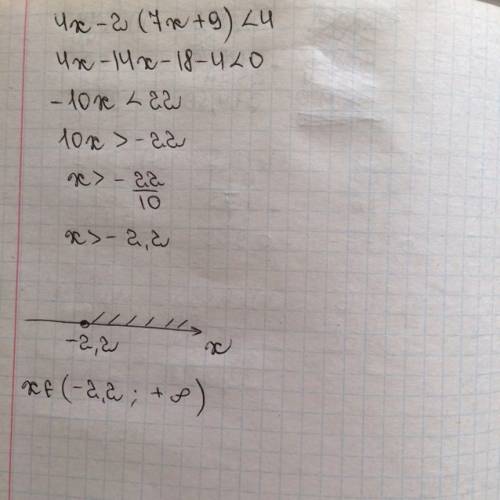 4x-2(7x+9)<4
4x-14x-18-4<0
-10x<22
10x>-22
x>-22/10
x>-2,2
-2,2 x
x∈(-2,2; +∞)